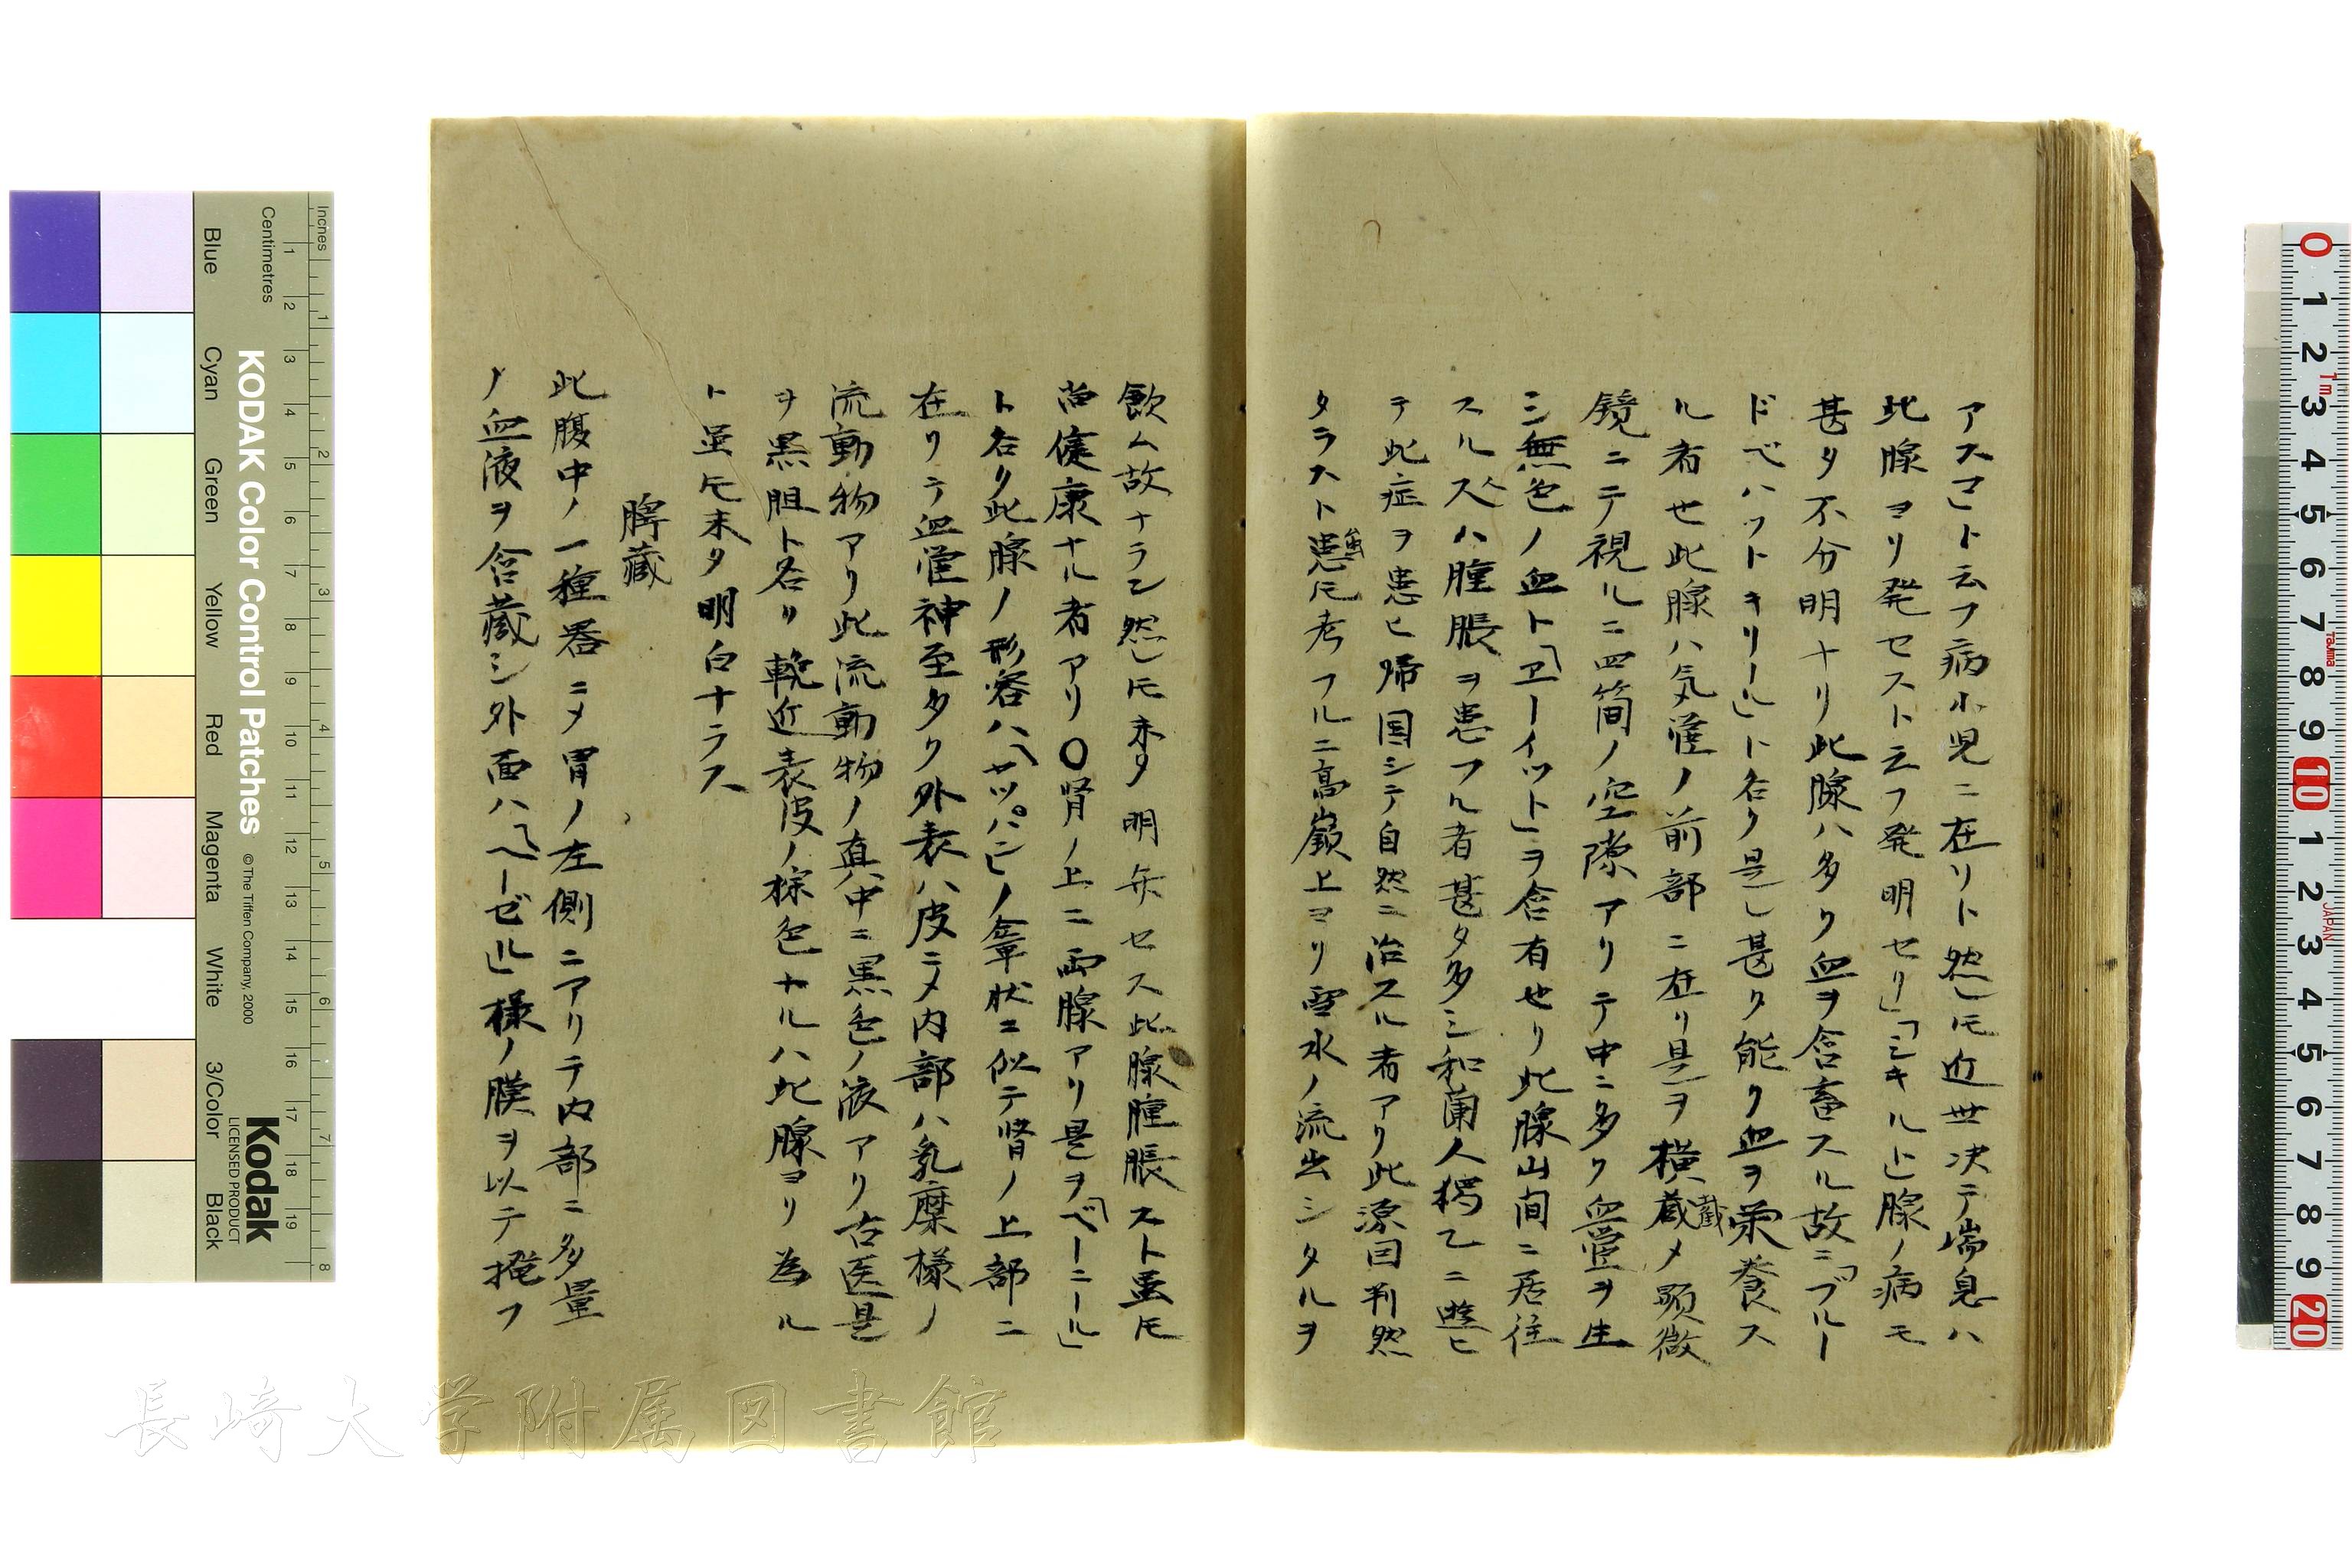 アスマト云フ病小児ニ在リト然レ𪜈近世決テ喘息ハ
此腺ヨリ発セスト云フ発明セリ」「シキルト」腺ノ病モ
甚タ不分明ナリ此腺ハ多ク血ヲ含畜スル故ニ「ブルー
ドベハットキリール」ト名ク是レ甚タ能ク血ヲ栄養ス
ル者也此腺ハ気管ノ前部ニ在リ是ヲ横蔵截〆顕微
鏡ニテ視ルニ四箇ノ空隙アリテ中ニ多ク血管ヲ生
シ無色ノ血ト「ヱーイット」ヲ含有せリ此腺山間ニ居住
スル人ハ腫脹ヲ患フル者甚タ多シ和蘭人独乙ニ遊ヒ
テ此症ヲ患ヒ帰国シテ自然ニ治スル者アリ此源因判然
タラスト虽𪜈考フルニ高嶺上ヨリ雪水ノ流出シタルヲ
飲ム故ナラン然レ𪜈未タ明弁セス此腺腫脹スト虽𪜈
尚健康ナル者アリ〇腎ノ上ニ両腺アリ是ヲ「ベーニール」
ト名ク此腺ノ形容ハ「サッパニヒ」ノ傘状ニ似テ腎ノ上部ニ
在リテ血管神至多ク外表ハ皮ニ〆内部ハ乳糜様ノ
流動物アリ此流動物ノ真中ニ黒色ノ液アリ古医是
ヲ黒胆ト名リ輓近表皮ノ棕色ナルハ此腺ヨリ為ル
ト虽𪜈未タ明白ナラス
脾蔵
此腹中ノ一種器ニ〆胃ノ左側ニアリテ内部ニ多量
ノ血液ヲ含蔵シ外面ハ「ヘーゼル」様ノ膜ヲ以テ掩フ
KODAK Color Control Patches
© The Tiffen Company, 2000
Kodak
LICENSED PRODUCT
Inches
Centimetres
Blue
Cyan
Green
Yellow
Red
Magenta
White
3/Color
Black
長崎大学附属図書館